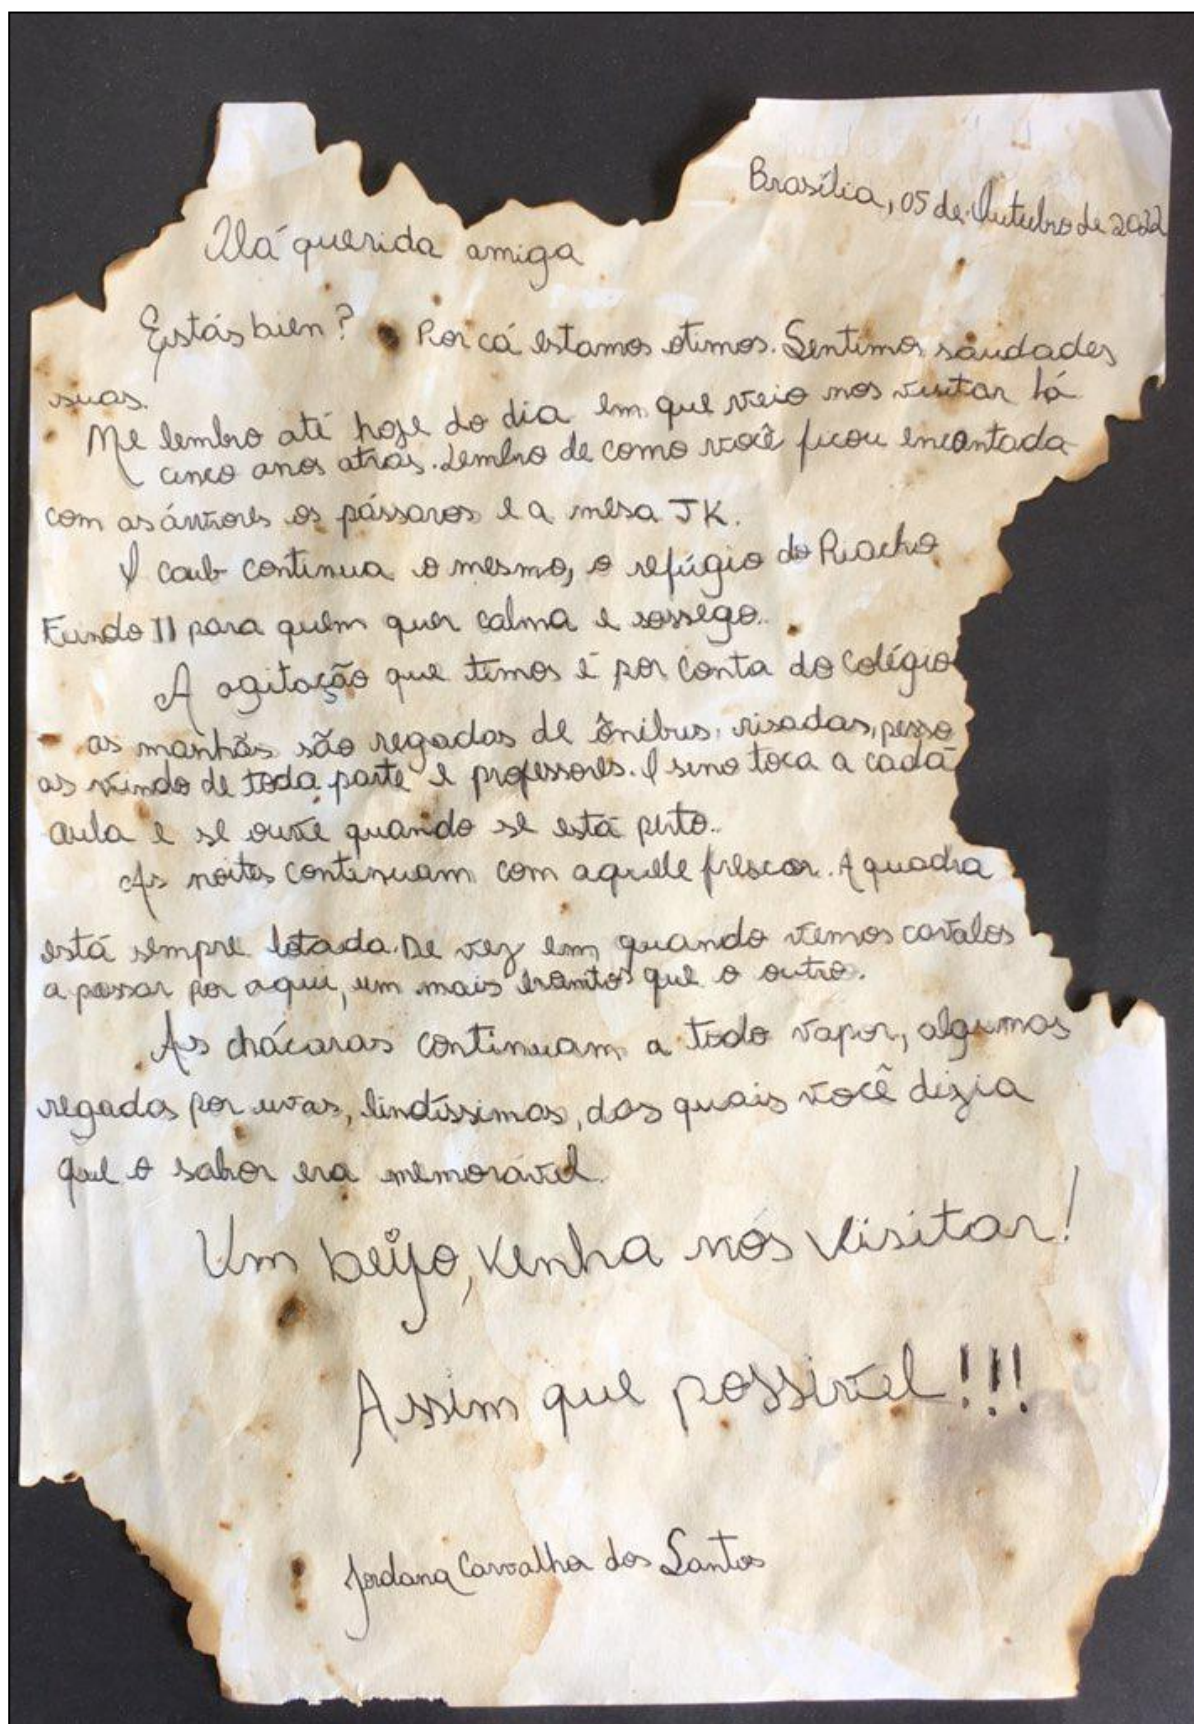 Brasília, 05 de Outubro de 2022
Olá querida amiga
Estás bien? Por cá estamos otimos. Sentimos saudades
suas.
Me lembro até hoje do dia em que veio nos visitar há
cinco anos atrás. Lembro de como você ficou encantada
com as árvores os pássaros e a mesa JK.
O caub continua o mesmo, o refúgio do Riacho
Fundo II para quem quer calma e sossego.
A agitação que temos é por conta do colégio
as manhãs são regadas de ônibus, risadas, pesso
as vindo de toda parte e professores. O sino toca a cada
aula e se ouve quando se está perto.
As noites continuam com aquele frescor. A quadra
está sempre lotada. De vez em quando vemos cavalos
a passar por aqui, um mais bonito que o outro.
As chácaras continuam a todo vapor, algumas
regadas por uvas, lindíssimas, das quais você dizia
que o sabor era memorável.
Um beijo, venha nós visitar!
Assim que possível!!!
Jordana Carvalho dos Santos